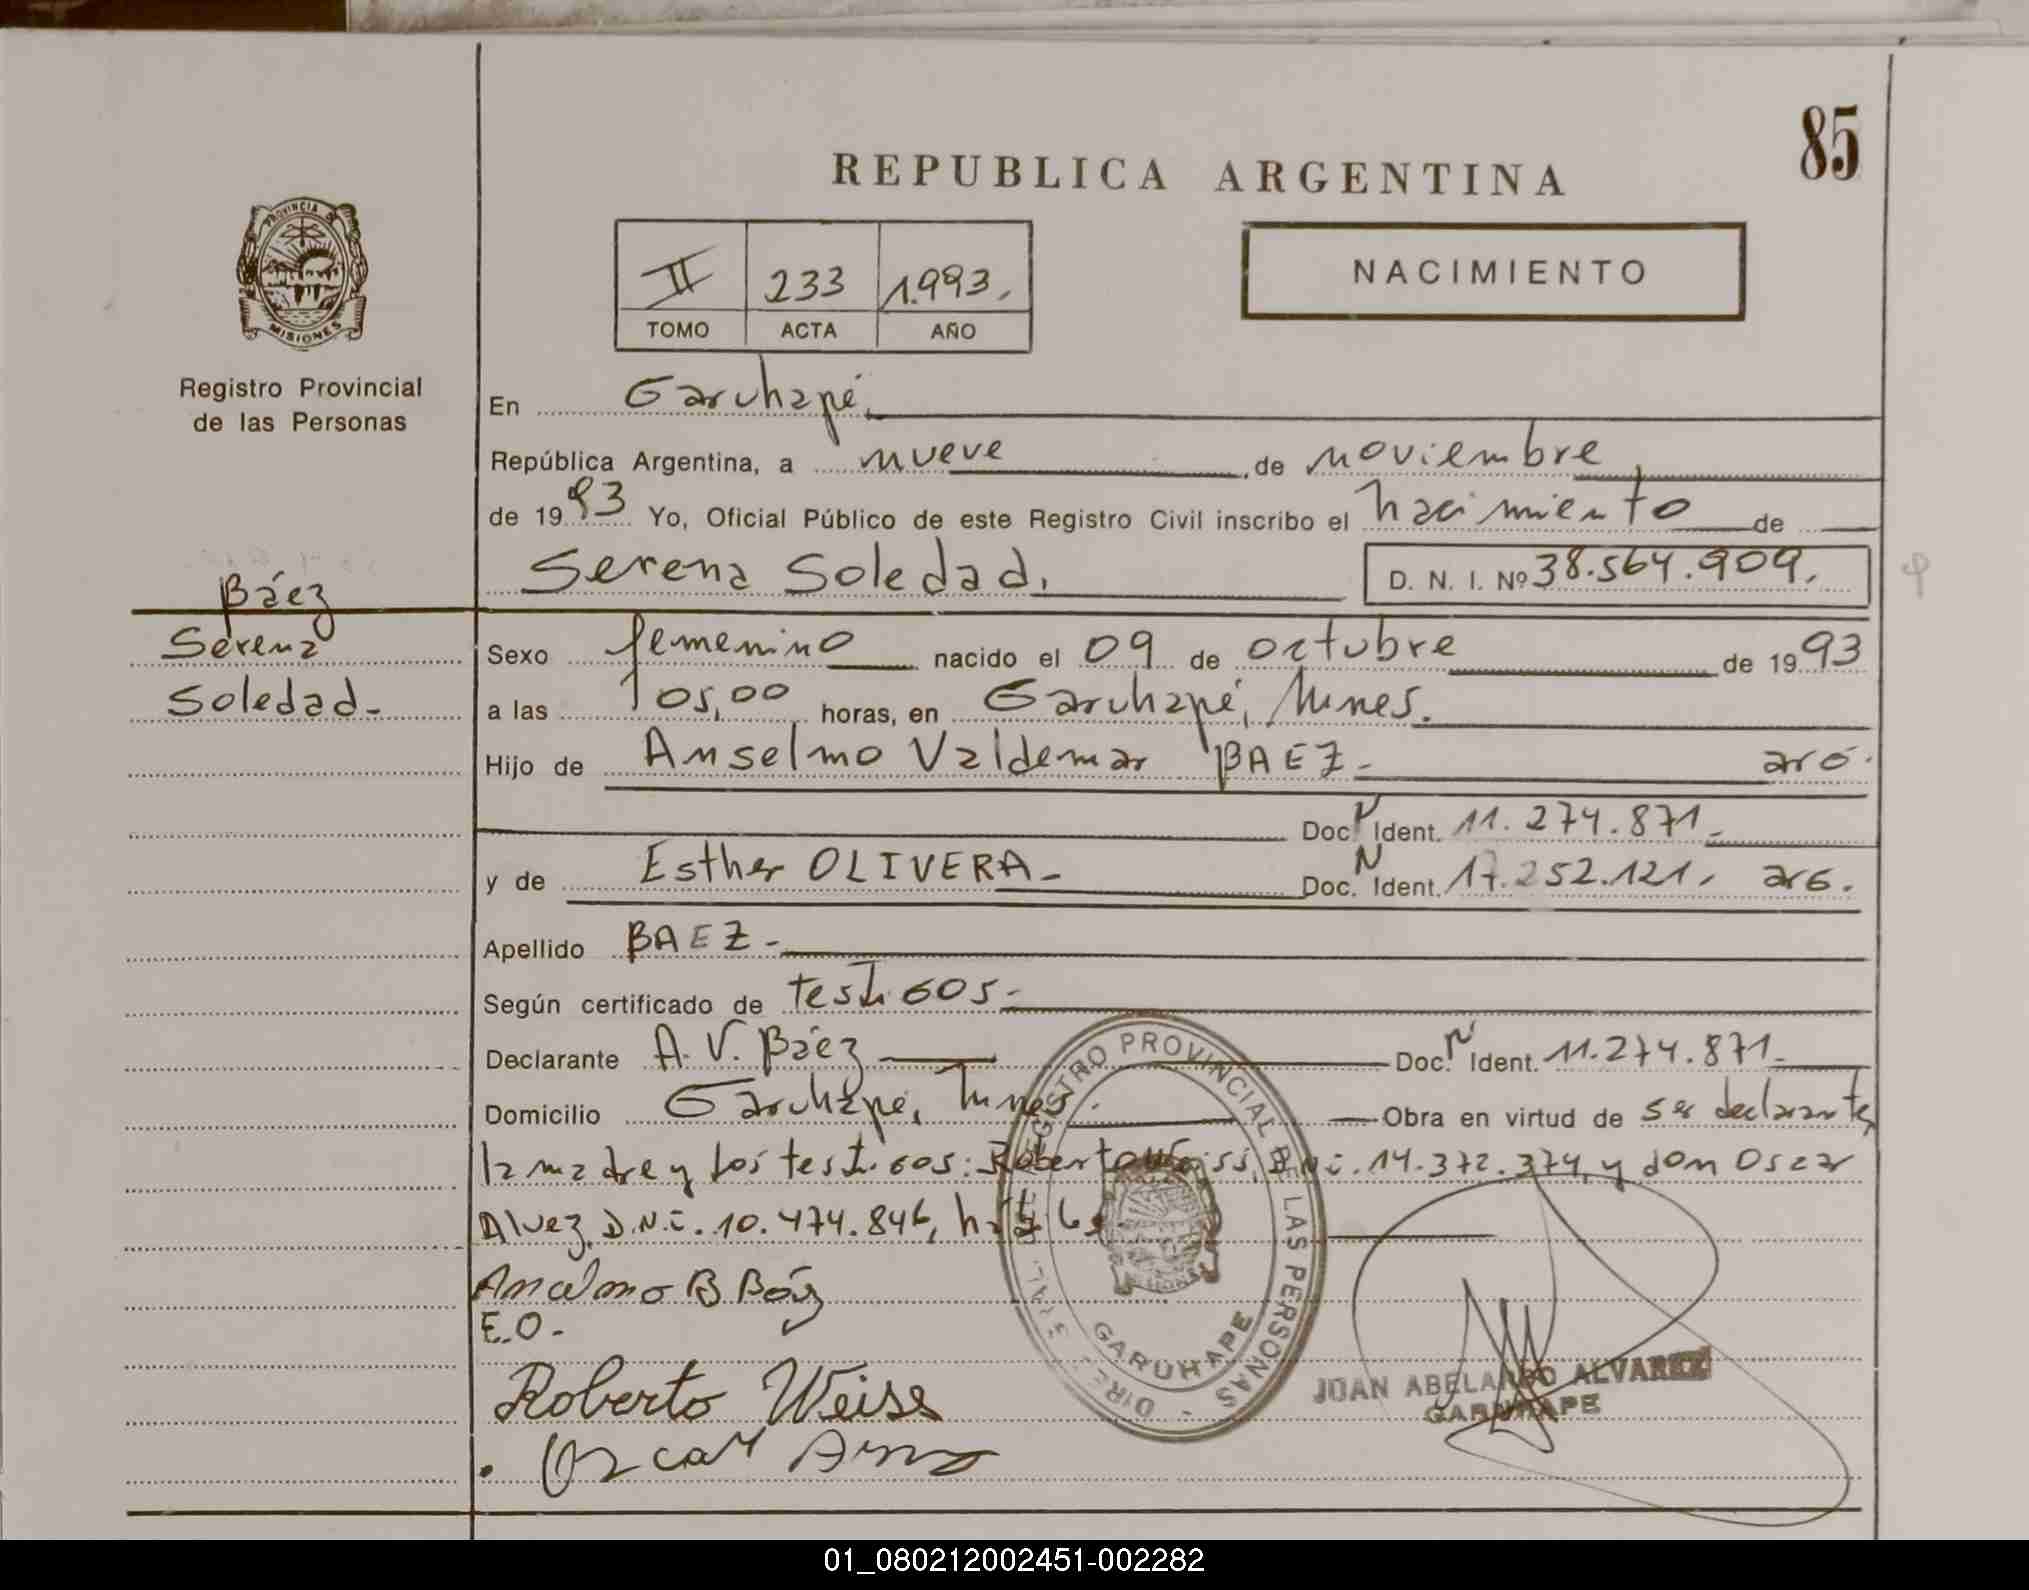 85
REPUBLICA ARGENTINA
PROVINCIA DE
MISIONES
Registro Provincial
de las Personas
II 233 1.993.
TOMO ACTA AÑO
NACIMIENTO
En Garuhapé
República Argentina, a nueve de noviembre
de 1993 Yo, Oficial Público de este Registro Civil inscribo el nacimiento de
Serena Soledad. D. N. I. Nº 38.564.909.
Báez
Serena
Soledad.-
Sexo femenino nacido el 09 de octubre de 1993
a las 05,00 horas, en Garuhapé, Mnes.
Hijo de Anselmo Valdemar BAEZ.- arg.
Doc. N Ident. 11.274.871.-
y de Esther OLIVERA.- Doc. N Ident. 17.252.121, arg.
Apellido BAEZ.-
Según certificado de testigos.-
Declarante A. V. Báez Doc. N Ident. 11.274.871.-
Domicilio Garuhapé, Mnes. Obra en virtud de ser declarantes
la madre y los testigos: Roberto Weiss, D.N.i. 14.372.374, y don Oscar
Alvez, D.N.i. 10.474.846,
Ancelmo B Báez
E.O.-
Roberto Weiss
Oscar
REGISTRO PROVINCIAL DE LAS PERSONAS
GARUHAPE
JUAN ABELARDO ALVAREZ
GARUHAPE
01_080212002451-002282